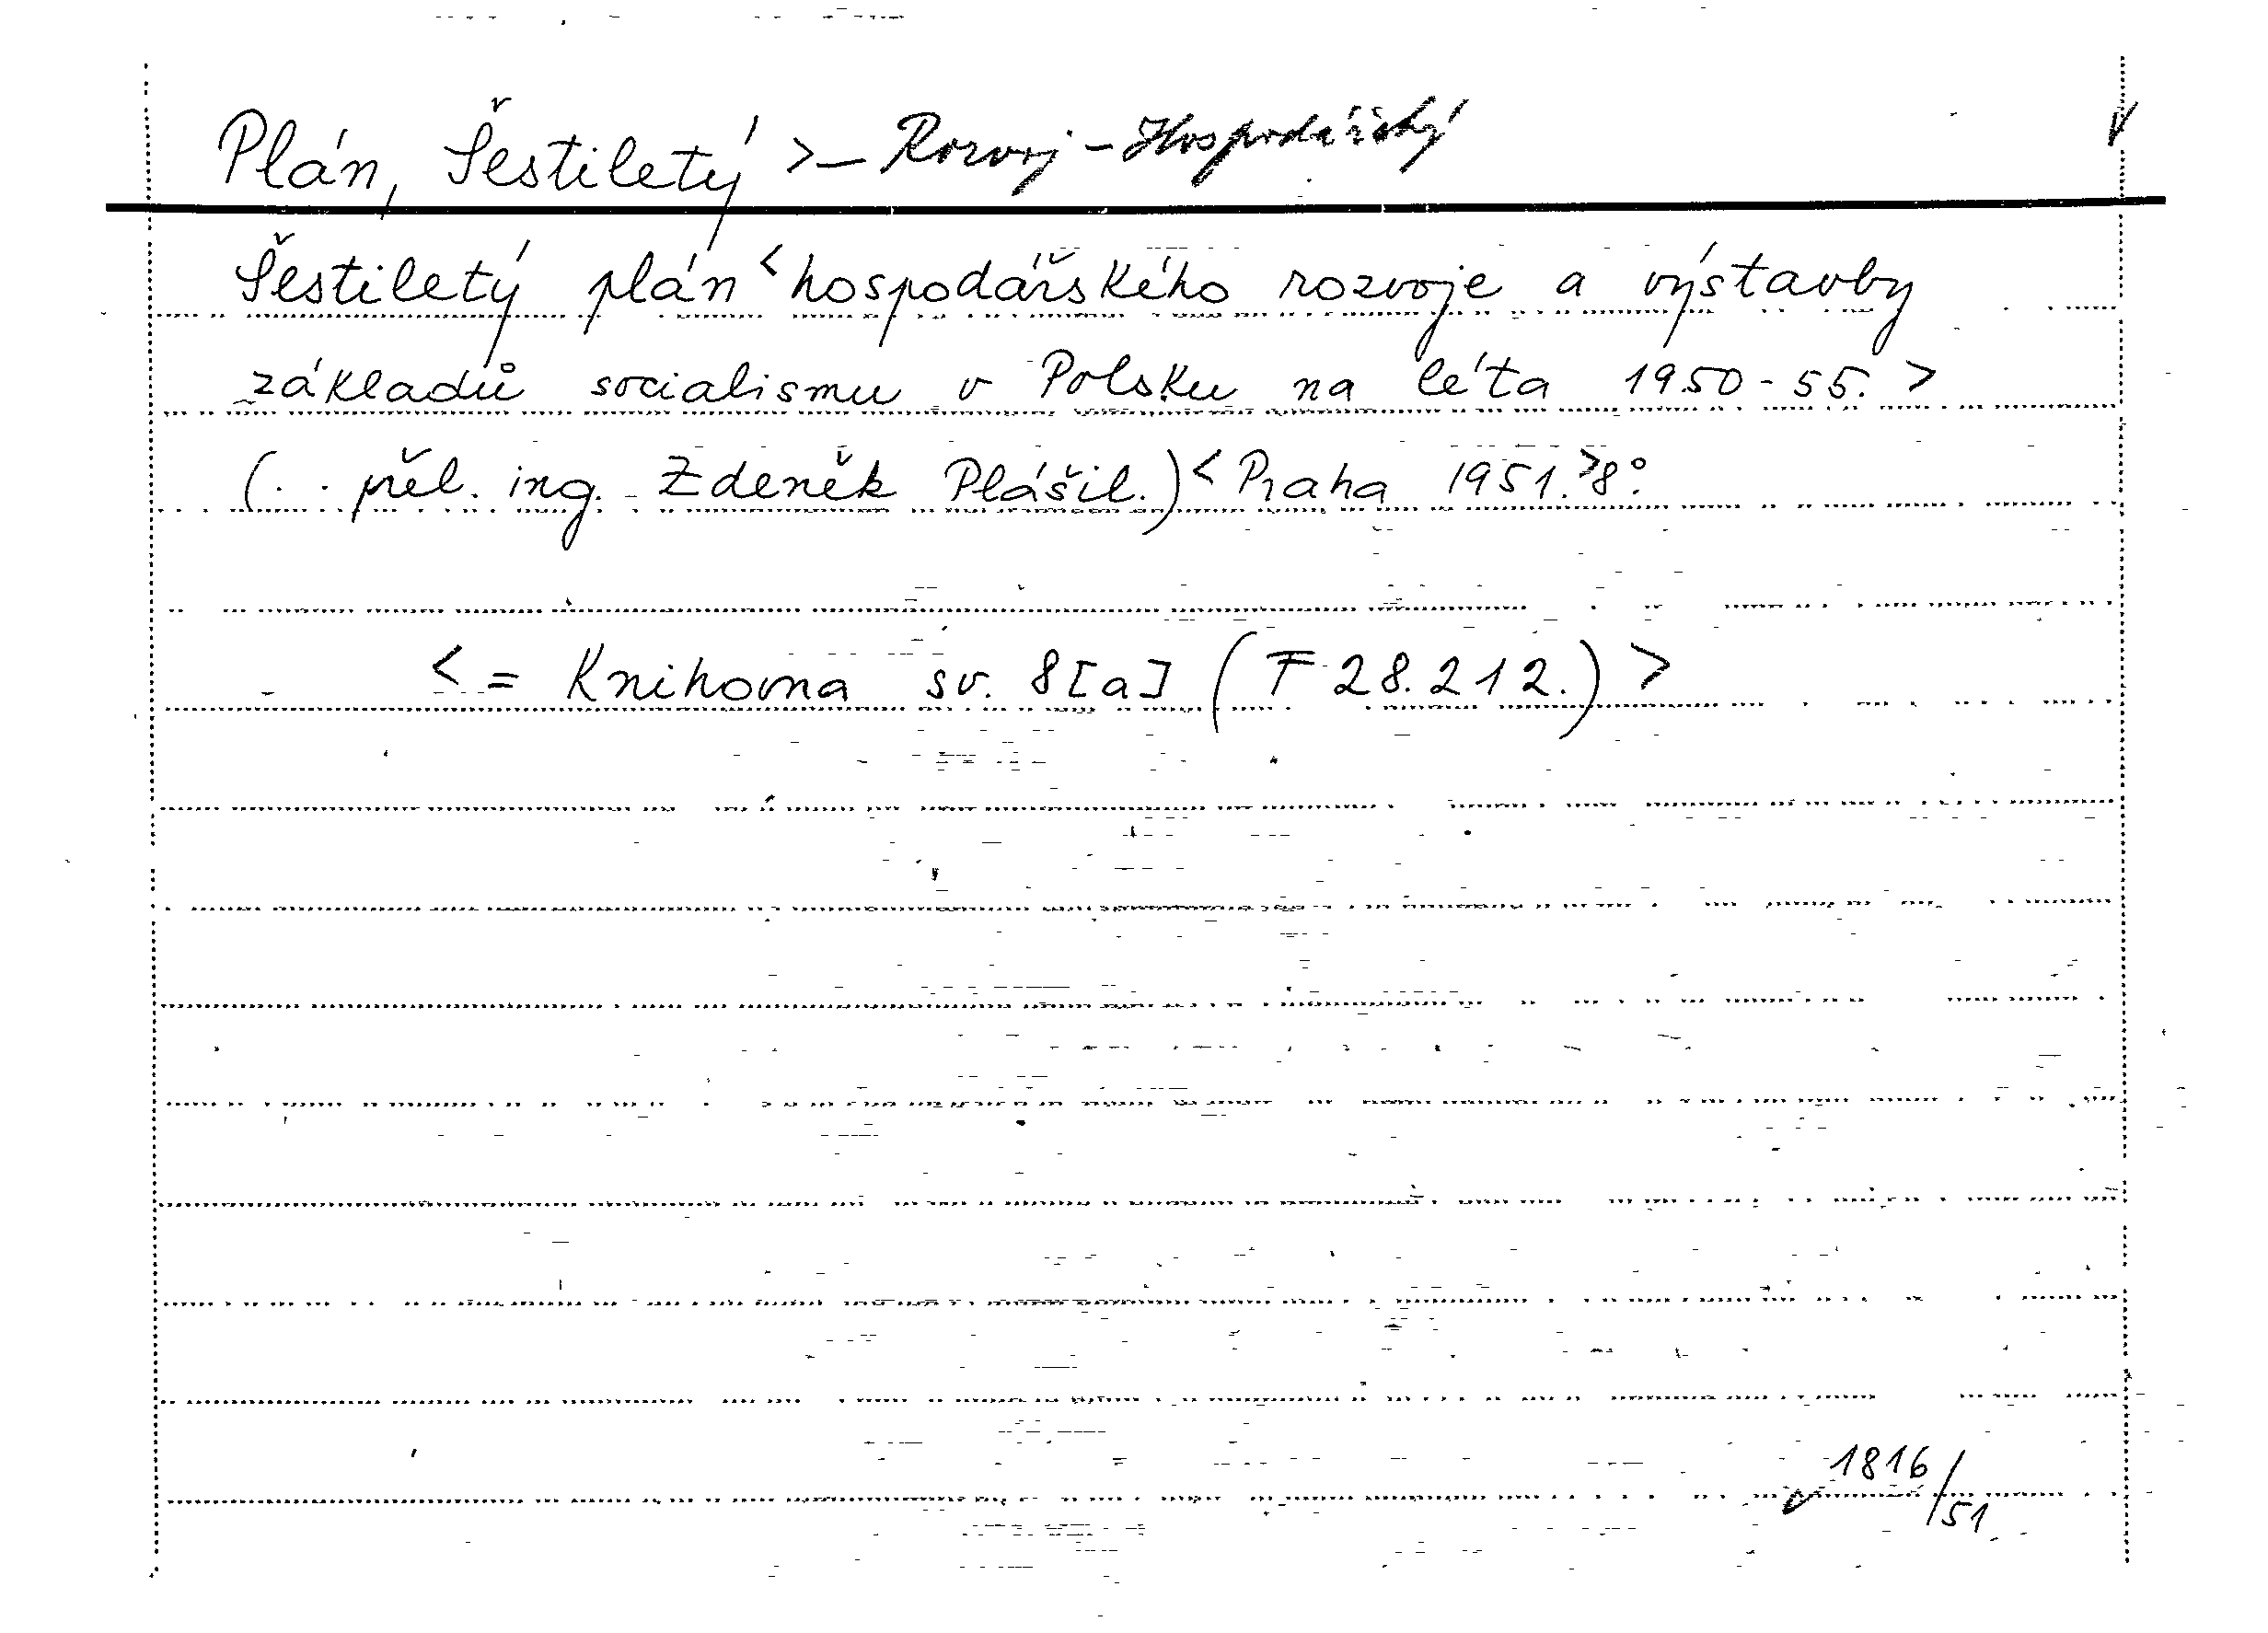 Plán, Šestiletý >– Rozvoj – Hospodářský
Šestiletý plán < hospodářského rozvoje a výstavby
základů socialismu v Polsku na léta 1950-55. >
(.. přel. ing. Zdeněk Plášil.) < Praha 1951. > 8°.
< = Knihovna sv. 8[a] (F 28.212.) >
1816/51.